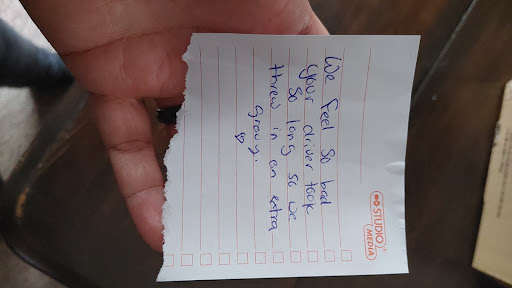 STUDIO
MEDIA
We feel so bad
your driver took
so long so we
threw in an extra
gravy.